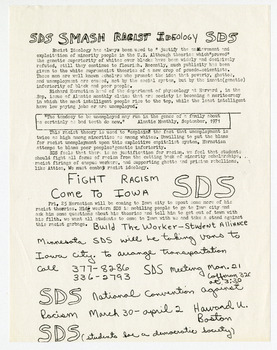 SDS SMASH RACIST IDEOLOGY SDS
Racist Ideology has always been used to "justify" the enslavement and
exploitation of minority people in the U.S. Although theories which "prove"
the genetic superiority of whites over blacks have been widely and decisively
refuted, still they continue to flourish. Recently, much publicity has been
given to the white superiority theories of a new crop of pseudo-scientists.
These men are well known scholars who promote the idea that poverty, ghettos,
and unemployment are caused, not by the social system, but by the inate(genetic)
inferiority of black and poor people.
Richard Herrnstein head of the department of physiology at Harvard, in the
Sept. issue of Atlantic monthly claims that our society is becoming a meritocracy
in which the most intelligent people rise to the top, while the least intelligent
have low paying jobs or are unemployed.
"The tendency to be unemployed may run in the genes of a family about
as certainly as bad teeth do now." Atlantic Monthly, September, 1971
This racist theory is used to explain the fact that unemployment is
twice as high among minorities as among whites. Instead of putting the blame
for racist unemployment upon this explosive capitalist system, Herrnstein
attempts to blame poor people's genetic inferiority.
SDS feels that there is no justification for racism, we feel that students
should fight all forms of racism from the cutting back of minority scholarships,
racist firings of campus workers, and supporting ghetto and prison rebellions,
like Attica. We must combat racist ideology.
FIGHT RACISM
COME TO IOWA SDS
Fri. 25 Herrnstein will be coming to Iowa city to spout some more of his
racist theories. SDS wants to be mobilizing people to go to Iowa city and
ask him some questions about his theories and tell him to get out of town with
his filth. we want all students to come to Iowa with us and take a stand against
this racist garbage. Build The Worker-Student Alliance
Minnesota SDS will be taking vans to
Iowa city. to arrange transportation
call 377-8286 SDS meeting Mon. 21
336-2793 Coffman 320
at 3:30
SDS National Convention against
Racism March 30-april 2 Havard U.
Boston
SDS (students for a democratic society)